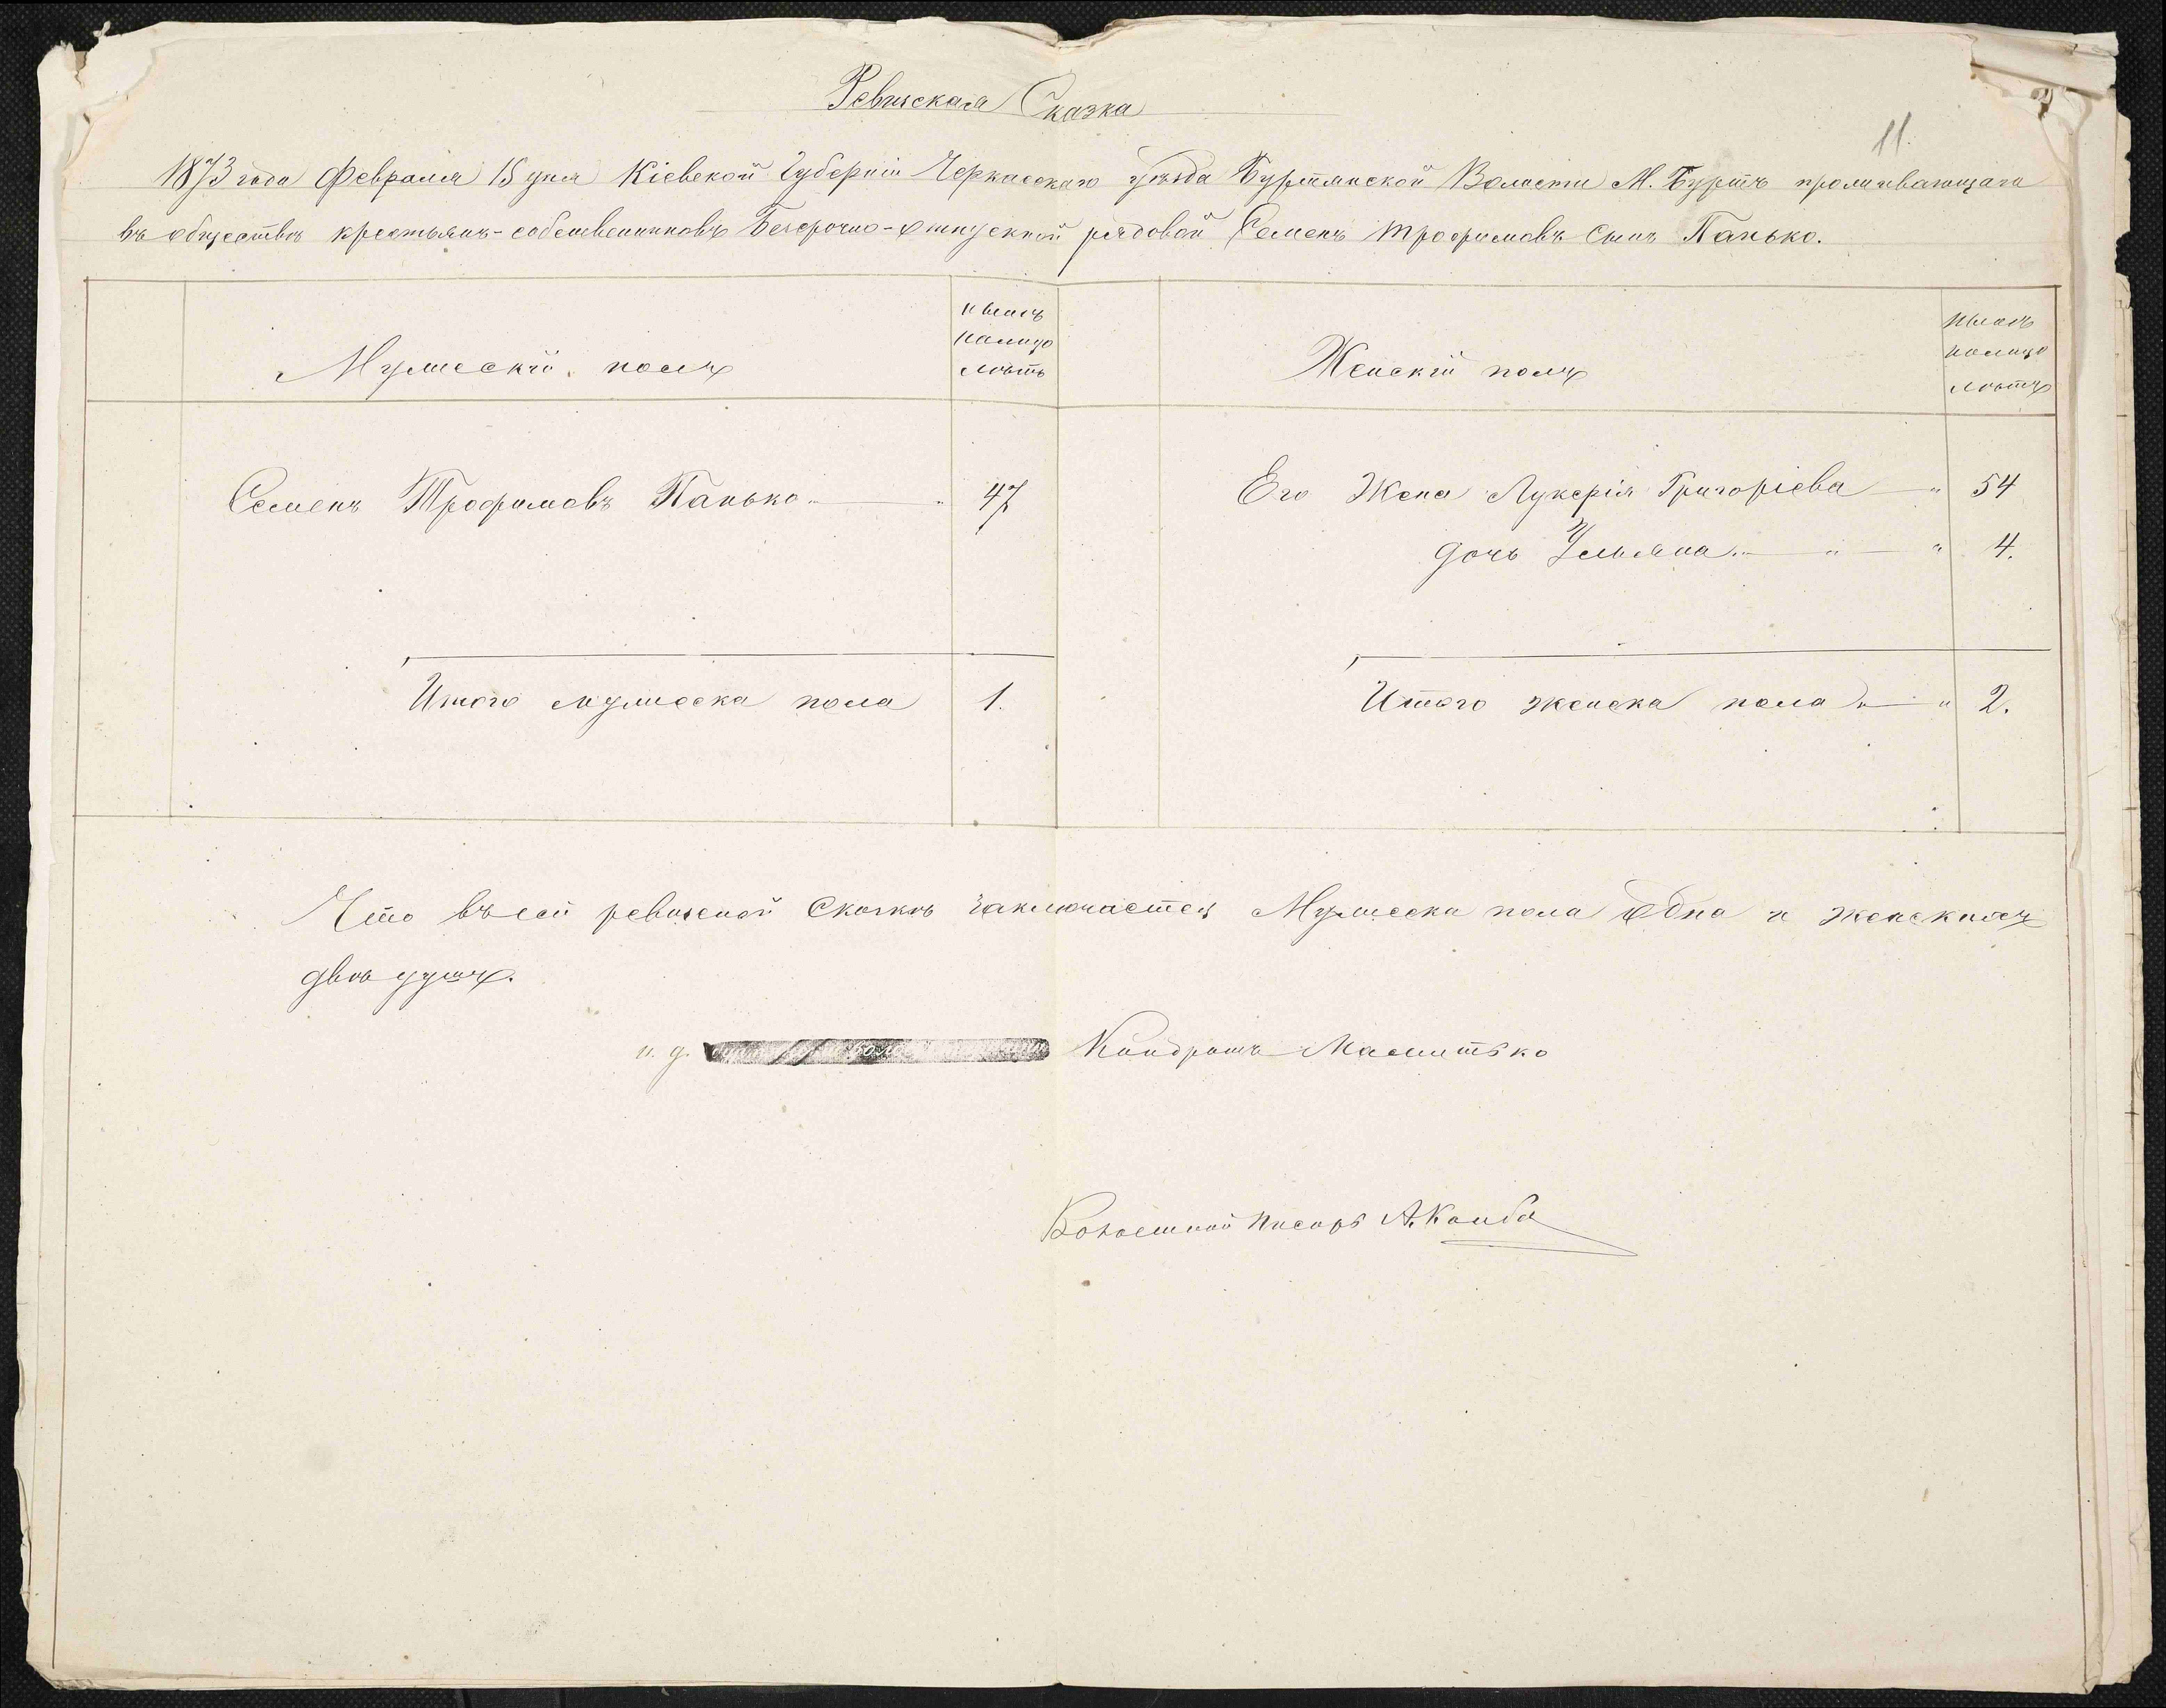 Ревизская Сказка
11.
1873 года Февраля 15 дня Кіевской Губерніи Черкасскаго уѣзда Буртянской Волости М. Буртъ проживающаго
въ обществѣ крестьянъ-собственниковъ Безсрочно-отпускной рядовой Семенъ Трофимовъ сынъ Панько.
Мужескій полъ
нынѣ
налицо
лѣтъ
Женскій полъ
нынѣ
налицо
лѣтъ
Семенъ Трофимовъ Панько 47
Его Жена Лукерія Григоріева " 54
дочь Ульяна " " 4.
Итого мужеска пола 1.
Итого женска пола " " 2.
Что въ сей ревизской Сказкѣ заключается Мужеска пола Одна и женскихъ
двѣ душъ.
и. д. Кондратъ
Волостной Писарь А.